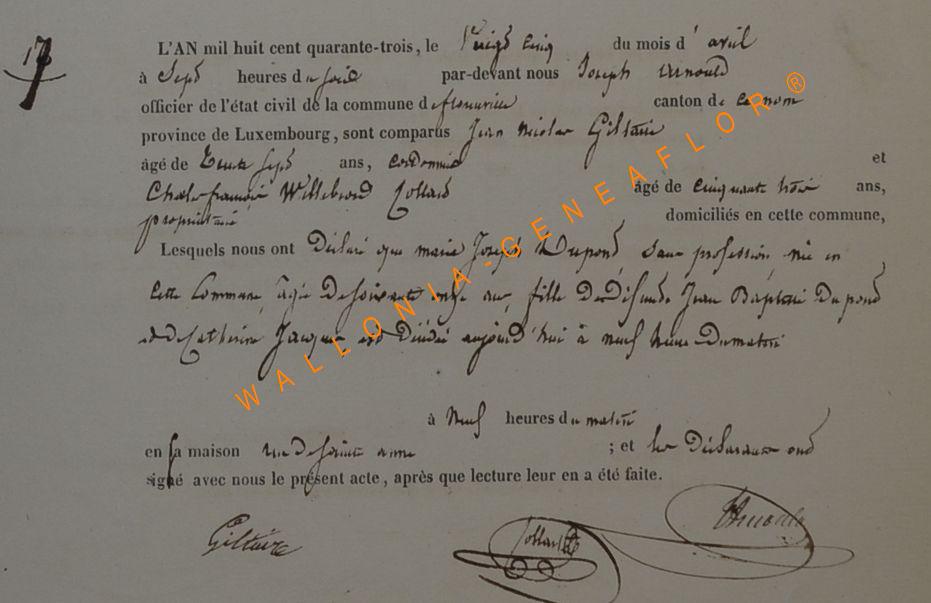 17
L'AN mil huit cent quarante-trois, le Vingt Cinq du mois d'avril
à Sept heures du soir par-devant nous Joseph Arnould
officier de l'état civil de la commune d canton de
province de Luxembourg, sont comparus Jean Nicolas Giltaire
âgé de Trente Sept ans, Cordonnier et
Charles françois Willebrord Collard âgé de cinquante trois ans,
propriétaire domiciliés en cette commune,
Lesquels nous ont Déclaré que marie Joseph Dupond Sans profession née en
cette Commune âgée de soixante onze ans, fille de Défunds Jean Baptiste Dupond
et de Catherine Jacques est Décédée aujourd'hui à neuf heures Du matin
à Neuf heures du matin
en sa maison rue de sainte anne ; et les Déclarants ont
signé avec nous le présent acte, après que lecture leur en a été faite.
Giltaire Collard Arnould
WALLONIA-GENEAFLOR ®